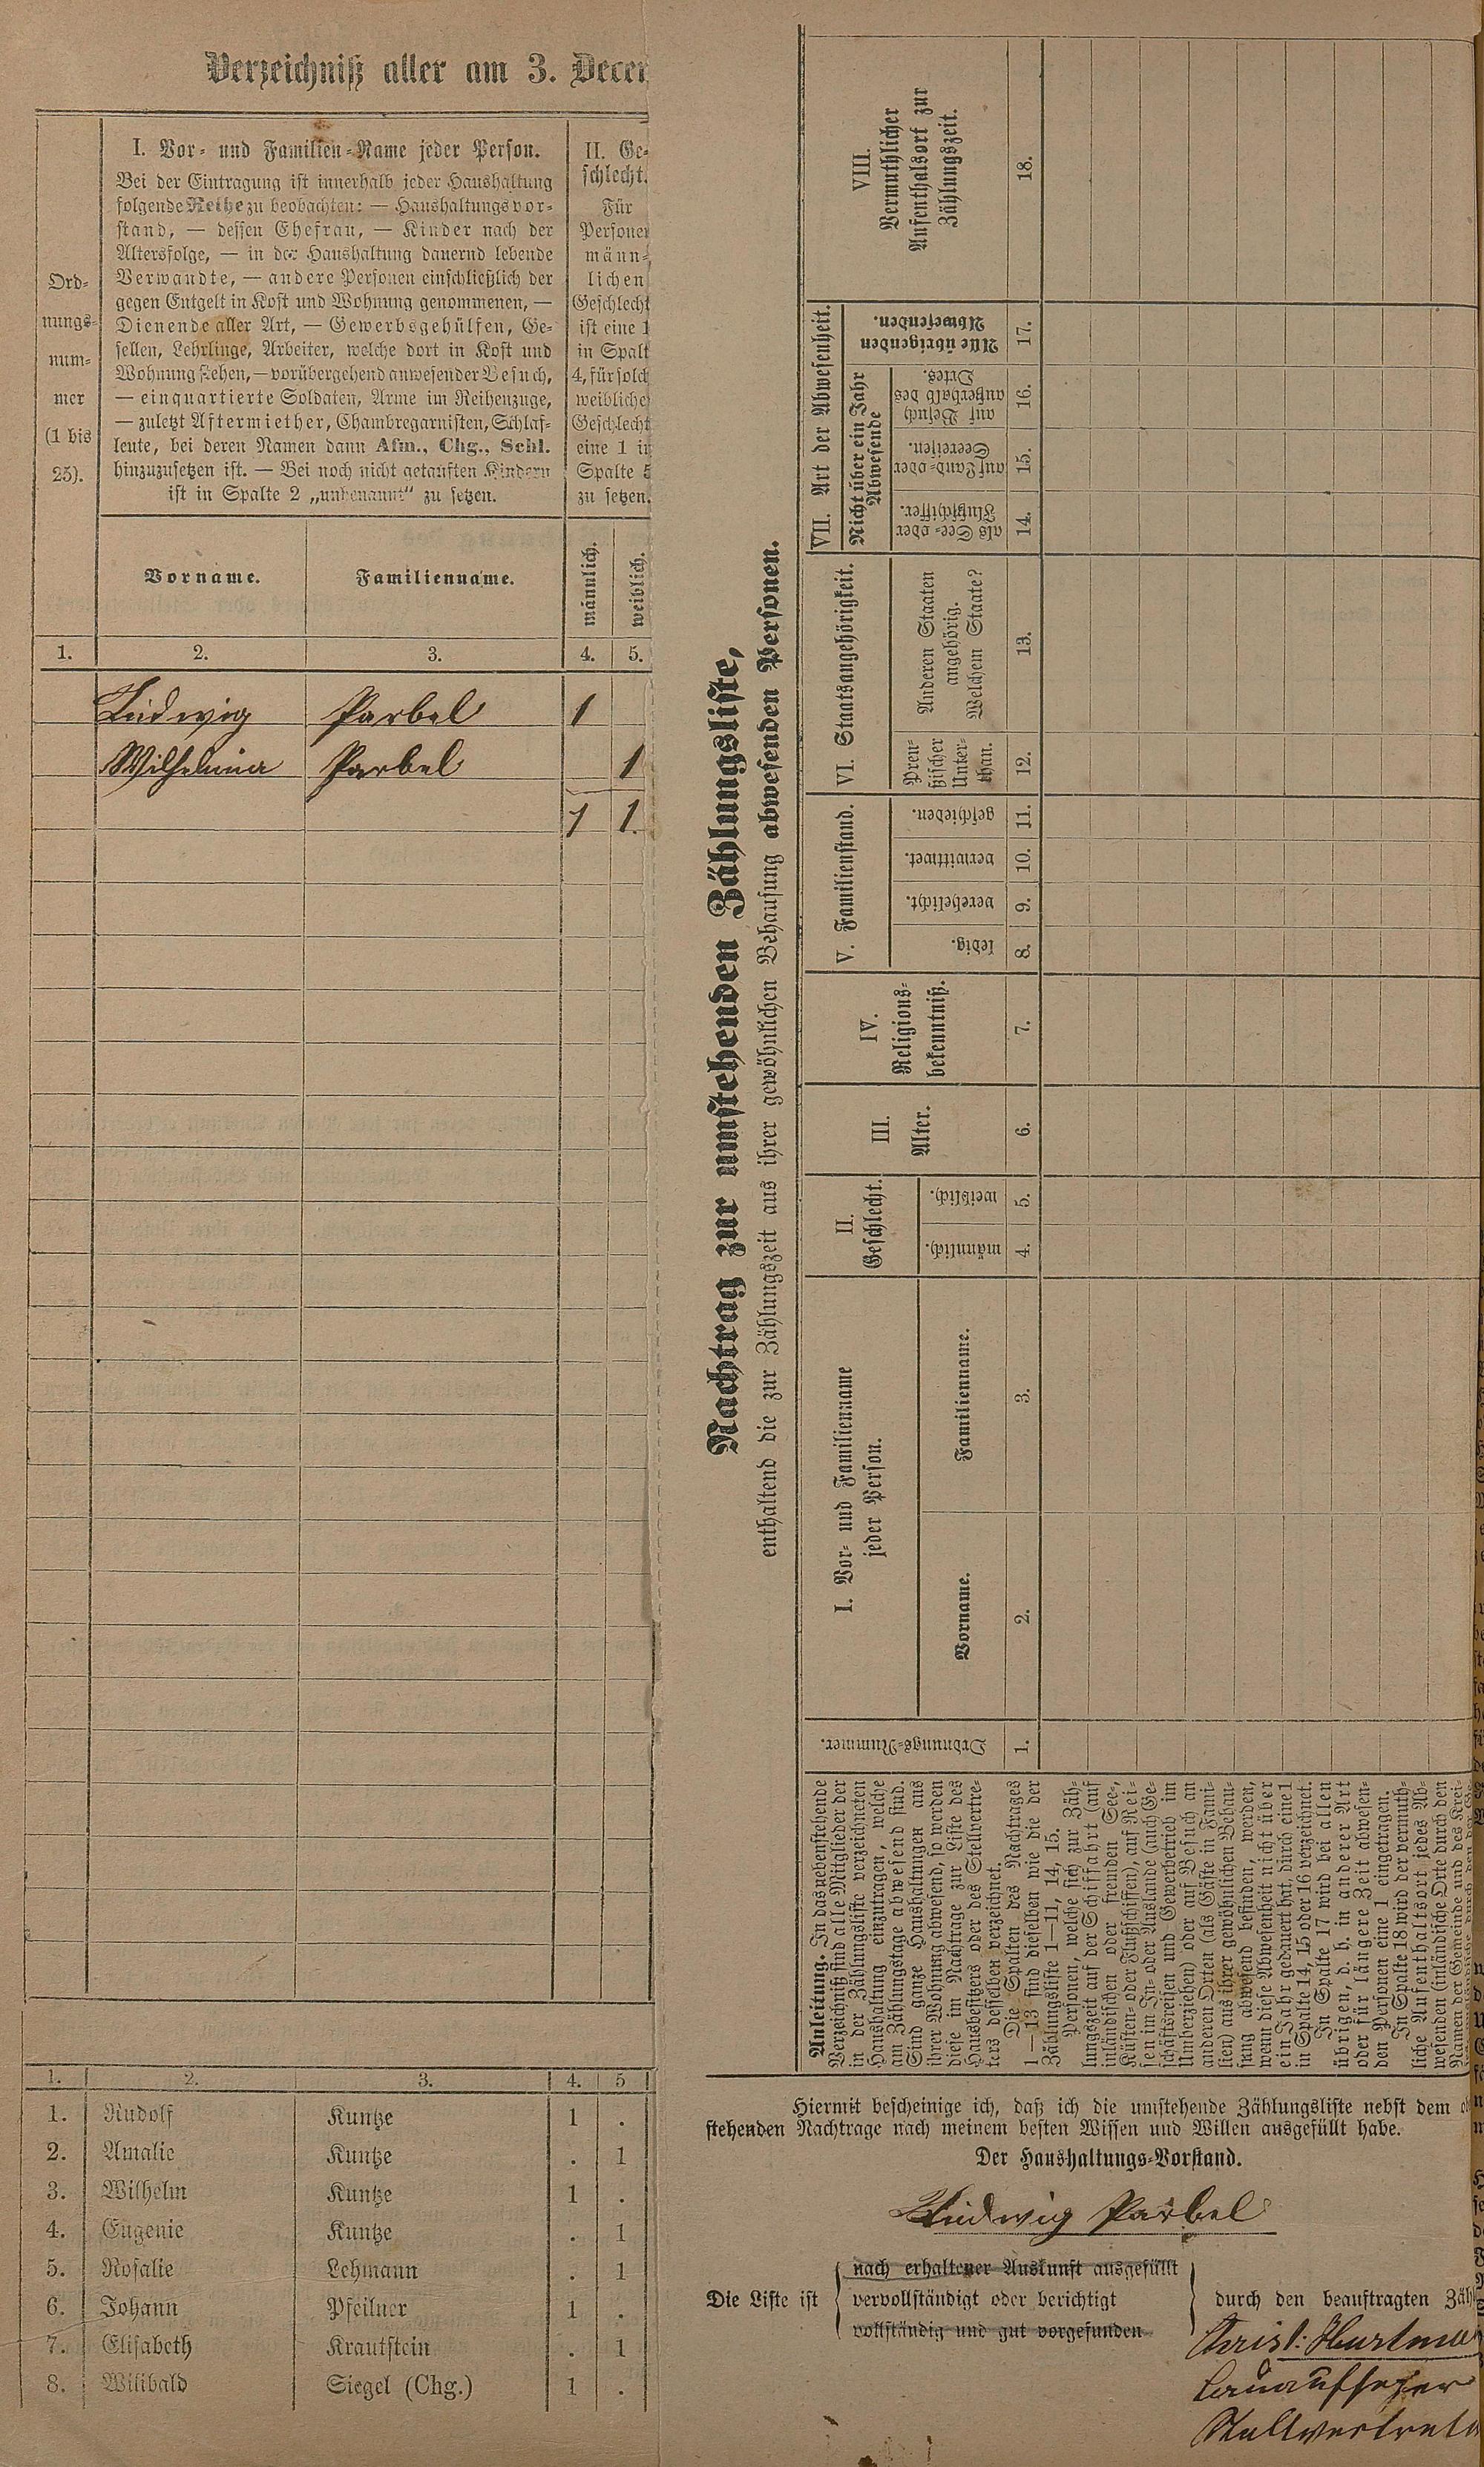 Verzeichniß aller am 3. Decem
Ord-
nungs-
num-
mer
(1 bis
25).
I. Vor- und Familien-Name jeder Person.
Bei der Eintragung ist innerhalb jeder Haushaltung
folgende Reihe zu beobachten: — Haushaltungsvor-
stand, — dessen Ehefrau, — Kinder nach der
Altersfolge, — in der Haushaltung dauernd lebende
Verwandte, — andere Personen einschließlich der
gegen Entgelt in Kost und Wohnung genommenen, —
Dienende aller Art, — Gewerbsgehülfen, Ge-
sellen, Lehrlinge, Arbeiter, welche dort in Kost und
Wohnung stehen, — vorübergehend anwesender Besuch,
— einquartierte Soldaten, Arme im Reihenzuge,
— zuletzt Aftermiether, Chambregarnisten, Schlaf-
leute, bei deren Namen dann Afm., Chg., Schl.
hinzuzusetzen ist. — Bei noch nicht getauften Kindern
ist in Spalte 2 „unbenannt“ zu setzen.
II. Ge-
schlecht.
Für
Personen
männ-
lichen
Geschlecht
ist eine 1
in Spalt
4, für solch
weibliche
Geschlecht
eine 1 in
Spalte 5
zu setzen.
Vorname. Familienname. männlich. weiblich.
1. 2. 3. 4. 5.
Ludwig Parbel 1
Wilhelmina Parbel 1
1 1.
1. 2. 3. 4. 5
1. Rudolf Kuntze 1 .
2. Amalie Kuntze . 1
3. Wilhelm Kuntze 1 .
4. Eugenie Kuntze . 1
5. Rosalie Lehmann . 1
6. Johann Pfeilner 1 .
7. Elisabeth Krautstein . 1
8. Wilibald Siegel (Chg.) 1 .
Nachtrag zur umstehenden Zählungsliste,
enthaltend die zur Zählungszeit aus ihrer gewöhnlichen Behausung abwesenden Personen.
Anleitung. In das nebenstehende
Verzeichniß sind alle Mitglieder der
in der Zählungsliste verzeichneten
Haushaltung einzutragen, welche
am Zählungstage abwesend sind.
Sind ganze Haushaltungen aus
ihrer Wohnung abwesend, so werden
diese im Nachtrage zur Liste des
Hausbesitzers oder des Stellvertre-
ters desselben verzeichnet.
Die Spalten des Nachtrages
1—13 sind dieselben wie die der
Zählungsliste 1—11, 14, 15.
Personen, welche sich zur Zäh-
lungszeit auf der Schiffahrt (auf
inländischen oder fremden See-,
Küsten- oder Flußschiffen), auf Rei-
sen im In- oder Auslande (auch Ge-
schäftsreisen und Gewerbetrieb im
Umherziehen) oder auf Besuch an
anderen Orten (als Gäste in Fami-
lien) aus ihrer gewöhnlichen Behau-
sung abwesend befinden, werden,
wenn diese Abwesenheit nicht über
ein Jahr gedauert hat, durch eine 1
in Spalte 14, 15 oder 16 verzeichnet.
In Spalte 17 wird bei allen
übrigen, d. h. in anderer Art
oder für längere Zeit abwesen-
den Personen eine 1 eingetragen.
In Spalte 18 wird der vermuth-
liche Aufenthaltsort jedes Ab-
wesenden (inländische Orte durch den
Namen der Gemeinde und des Krei-
Ordnungs-Nummer.
I. Vor- und Familienname
jeder Person.
Vorname. Familienname.
II.
Geschlecht.
männlich. weiblich.
III.
Alter.
IV.
Religions-
bekenntniß.
V. Familienstand.
ledig. verehelicht. verwittwet. geschieden.
VI. Staatsangehörigkeit.
Preu-
ßischer
Unter-
than.
Anderen Staaten
angehörig.
Welchem Staate?
VII. Art der Abwesenheit.
Nicht über ein Jahr
Abwesende
als See- oder
Flußschiffer.
auf Land- oder
Seereisen.
auf Besuch
außerhalb des
Ortes.
Alle übrigenden
Abwesenden.
VIII.
Vermuthlicher
Aufenthalsort zur
Zählungszeit.
1. 2. 3. 4. 5. 6. 7. 8. 9. 10. 11. 12. 13. 14. 15. 16. 17. 18.
Hiermit bescheinige ich, daß ich die umstehende Zählungsliste nebst dem
stehenden Nachtrage nach meinem besten Wissen und Willen ausgefüllt habe.
Der Haushaltungs-Vorstand.
Ludwig Parbel
Die Liste ist
nach erhaltener Auskunft ausgefüllt
vervollständigt oder berichtigt
vollständig und gut vorgefunden
durch den beauftragten Zähl
Christ: Hartman
Stellvertret